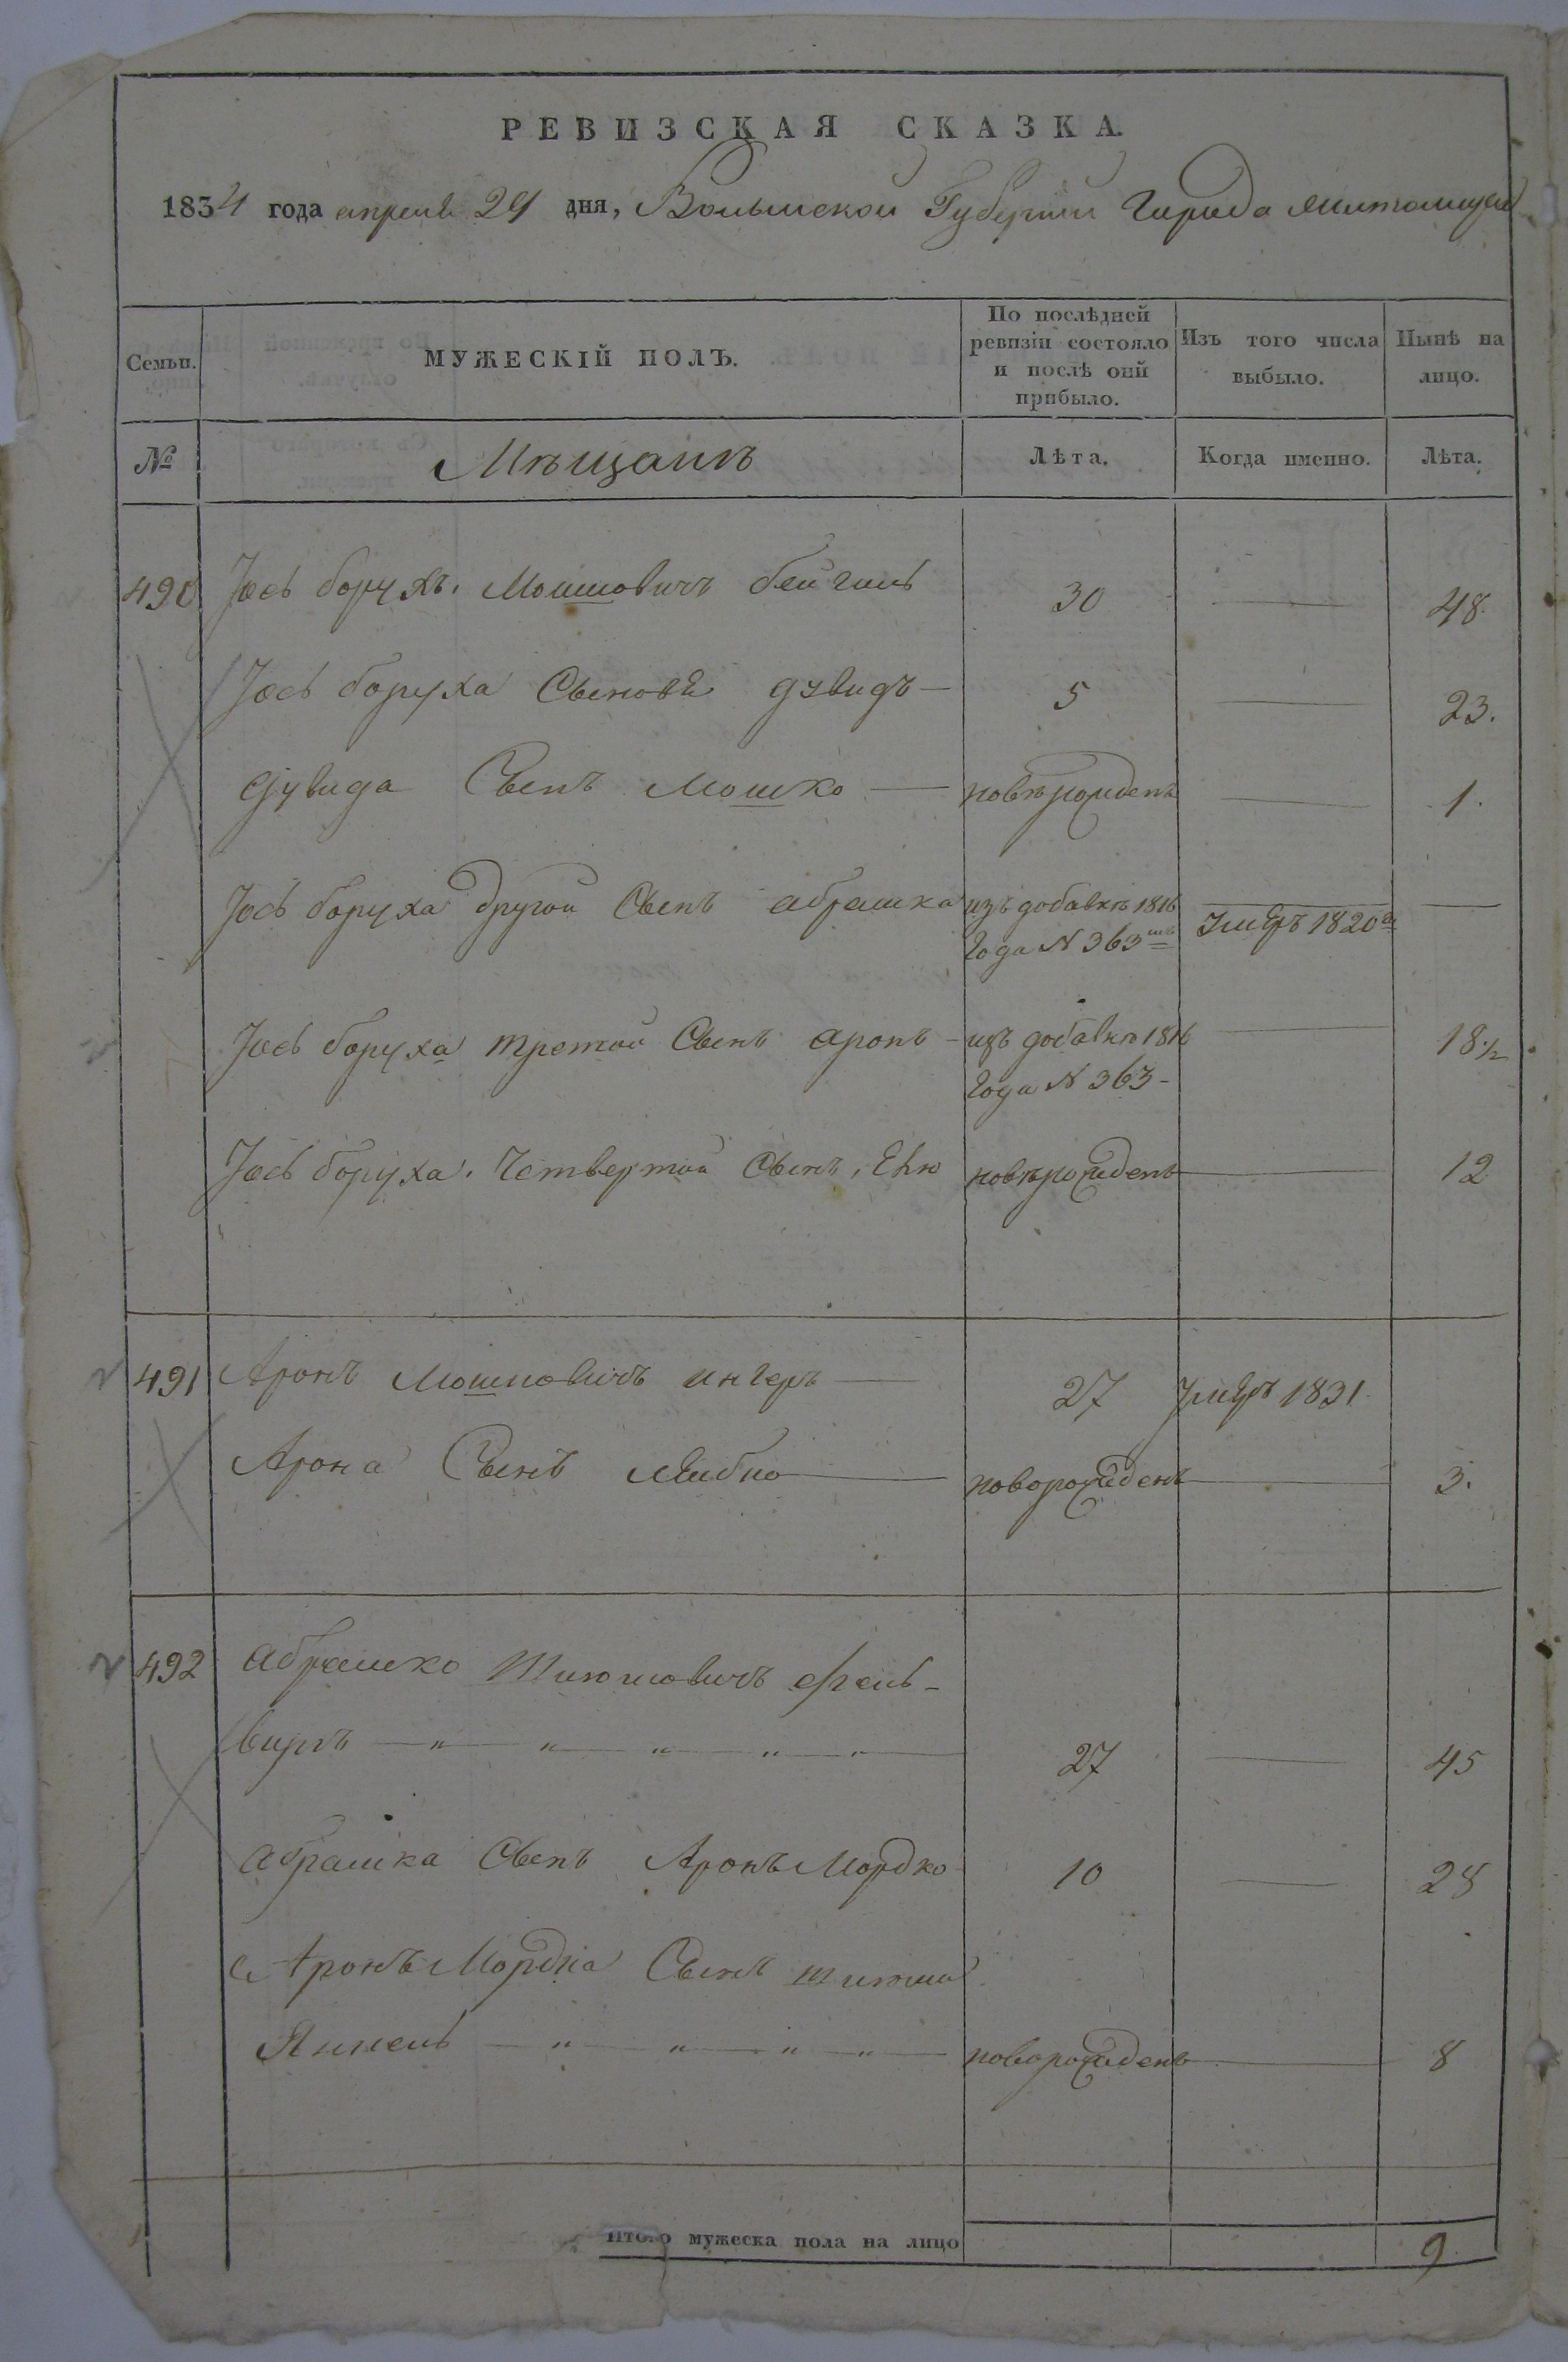 РЕВИЗСКАЯ СКАЗКА.
1834 года апреля 29 дня, Волынской Губернии Города Житомира
Семьи.
МУЖЕСКІЙ ПОЛЪ.
По послѣдней ревизіи состояло и послѣ оной прибыло.
Изъ того числа выбыло.
Нынѣ на лицо.
№
Мѣщанъ
Лѣта.
Когда именно.
Лѣта.
490 Іось борухъ Мошковичъ 30 — 48.
Іось боруха Сыновя дувидъ — 5 — 23.
дувида Сынъ Мошко — новърожденъ — 1.
Іось боруха другой Сынъ абрашка изъ добавкѣ 1816 Умеръ 1820 —
Года N 363
Іось боруха третой Сынъ аронъ — изъ добавкѣ 1816 — 18 ½
Года N 363 —
Іось боруха Четвертой Сынъ новърожденъ — 12
491 Аронъ Мошковичъ — 27 Умеръ 1831.
Арона Сынъ Лейбко — новорожденъ — 3.
492 абрашко
27 — 45
абрашка Сынъ Аронъ Мордко 10 — 28
Аронъ Мордка Сынъ
Янкель — " — " — " — " — новорожденъ — 8
Итого мужеска пола на лицо 9